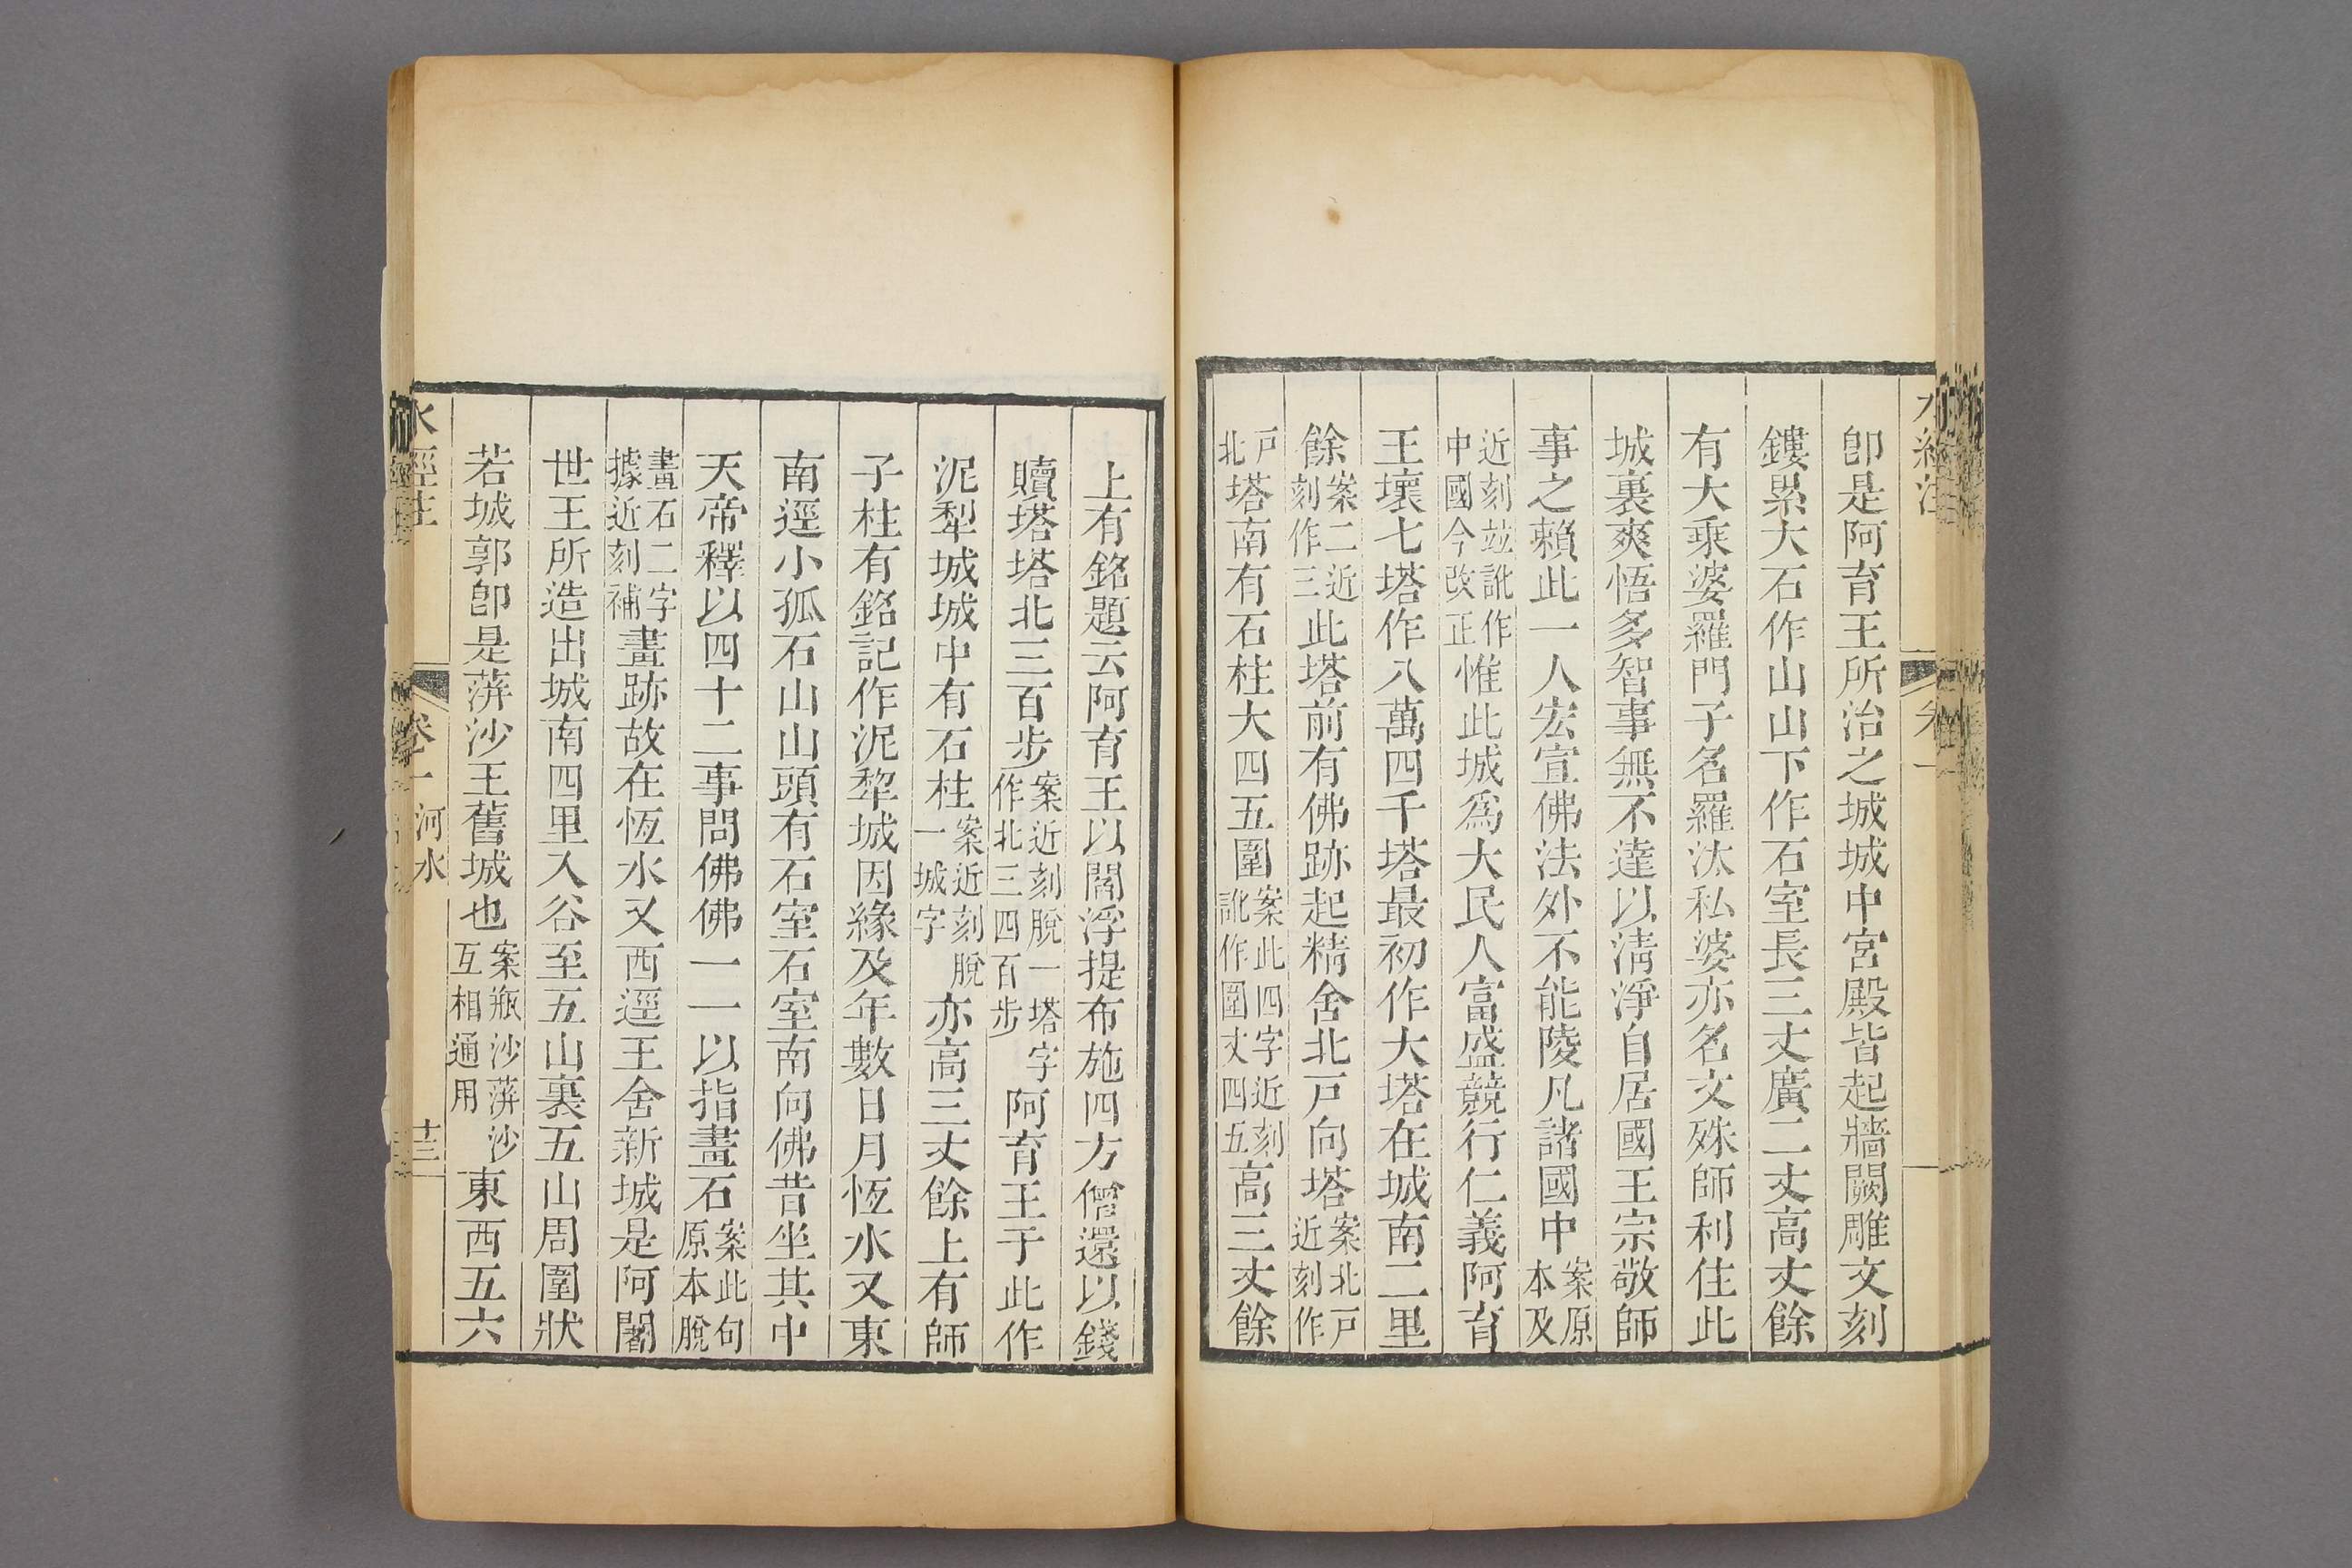 卽是阿育王所治之城城中宮殿皆起牆闕雕文刻
鏤累大石作山山下作石室長三丈廣二丈高丈餘
有大乘婆羅門子名羅汰私婆亦名文殊師利住此
城裏爽悟多智事無不達以淸淨自居國王宗敬師
事之賴此一人宏宣佛法外不能陵凡諸國中案原本及
近刻竝訛作中國今改正惟此城爲大民人富盛競行仁義阿育
王壞七塔作八萬四千塔最初作大塔在城南二里
餘案二近刻作三此塔前有佛跡起精舍北戸向塔案北戸近刻作
戸北塔南有石柱大四五圍案此四字近刻訛作圍丈四五高三丈餘
上有銘題云阿育王以閻浮提布施四方僧還以錢
贖塔塔北三百步案近刻脫一塔字作北三四百步阿育王于此作
泥犁城城中有石柱案近刻脫一城字亦高三丈餘上有師
子柱有銘記作泥犂城因緣及年數日月恆水又東
南逕小孤石山山頭有石室石室南向佛昔坐其中
天帝釋以四十二事問佛佛一一以指畫石案此句原本脫
畫石二字據近刻補畫跡故在恆水又西逕王舍新城是阿闍
世王所造出城南四里入谷至五山裏五山周圍狀
若城郭卽是蓱沙王舊城也案瓶沙蓱沙互相通用東西五六
水經注
卷一 河水
十三